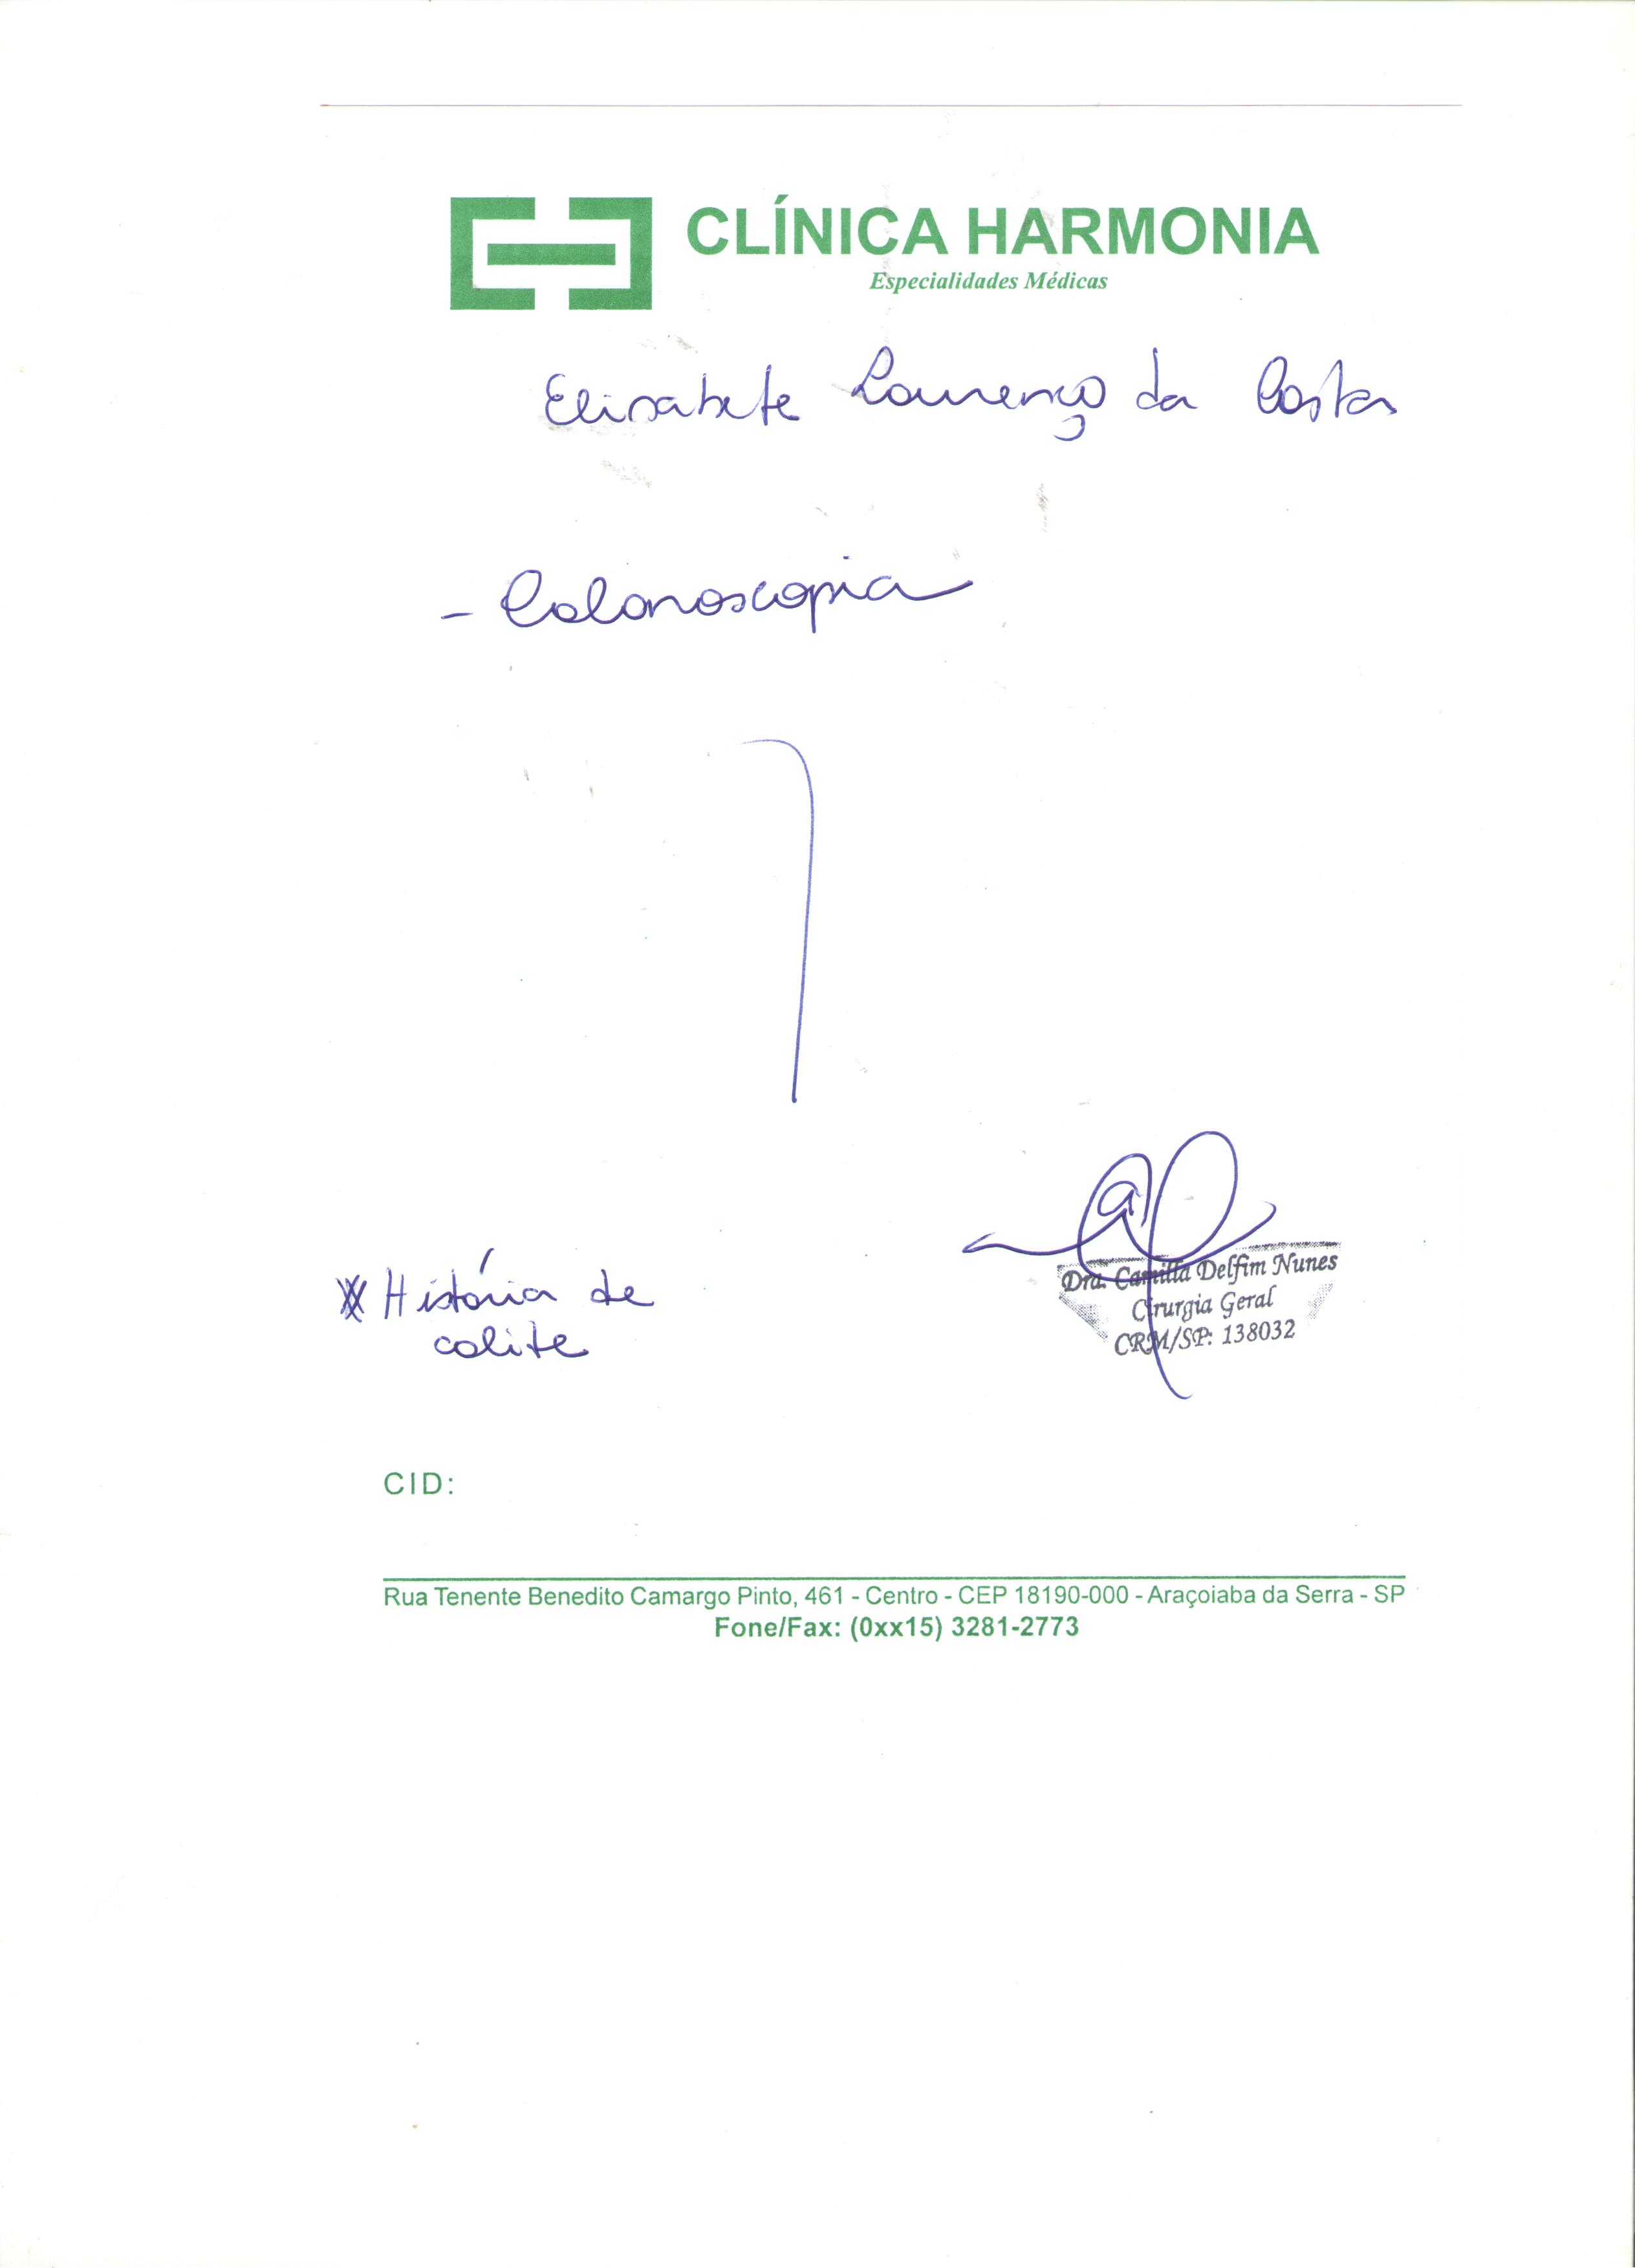 CLÍNICA HARMONIA
Especialidades Médicas
Elisabete Lourenço da Costa
- Colonoscopia
História de
colite
Dra. Camilla Delfim Nunes
Cirurgia Geral
CRM/SP: 138032
CID:
Rua Tenente Benedito Camargo Pinto, 461 - Centro - CEP 18190-000 - Araçoiaba da Serra - SP
Fone/Fax: (0xx15) 3281-2773